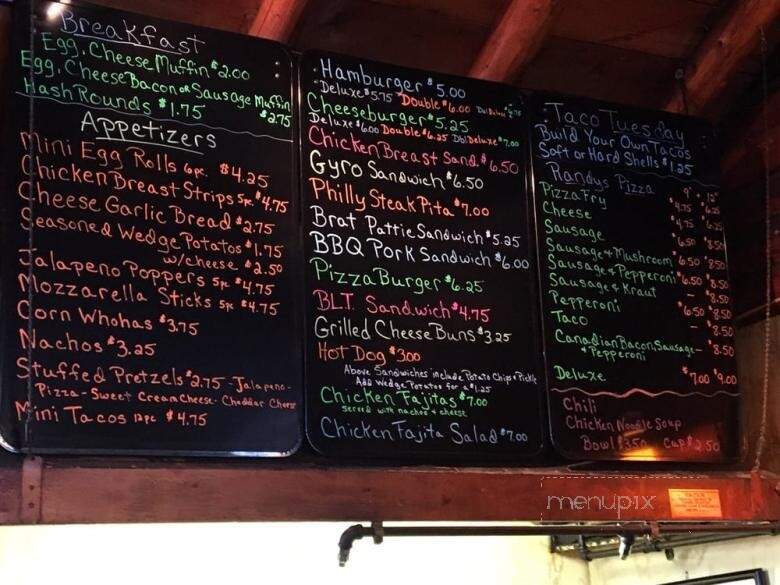 Breakfast
Egg, Cheese Muffin $2.00
Egg, Cheese Bacon or Sausage Muffin
$2.75
Hash Rounds $1.75
Appetizers
Mini Egg Rolls 6pc. $4.25
Chicken Breast Strips 5pc $4.75
Cheese Garlic Bread $2.75
Seasoned Wedge Potatos $1.75
w/cheese $2.50
Jalapeno Poppers 5pc $4.75
Mozzarella Sticks 5pc $4.75
Corn Whohas $3.75
Nachos $3.25
Stuffed Pretzels $2.75 - Jalapeno -
Pizza - Sweet Cream Cheese - Cheddar Cheese
Mini Tacos 12pc $4.75
Hamburger $5.00
Deluxe $5.75 Double $6.00 Dbl Deluxe
Cheeseburger $5.25
Deluxe $6.00 Double $6.25 Dbl Deluxe $7.00
Chicken Breast Sand. $6.50
Gyro Sandwich $6.50
Philly Steak Pita $7.00
Brat Pattie Sandwich $5.25
BBQ Pork Sandwich $6.00
Pizza Burger $6.25
BLT. Sandwich $4.75
Grilled Cheese Buns $3.25
Hot Dog $3.00
Above Sandwiches include Potato Chips & Pickle
Add Wedge Potatos for a $1.25
Chicken Fajitas $7.00
served with nachos & cheese
Chicken Fajita Salad $7.00
Taco Tuesday
Build Your Own Tacos
Soft or Hard Shells $1.25
Randys Pizza 9" 12"
Pizza Fry $4.75 $6.25
Cheese $4.75 $6.25
Sausage $6.50 $8.50
Sausage & Mushroom $6.50 $8.50
Sausage & Pepperoni $6.50 $8.50
Sausage & Kraut — $8.50
Pepperoni $6.50 $8.50
Taco — $8.50
Canadian Bacon, Sausage — $8.50
& Pepperoni
Deluxe $7.00 $9.00
Chili
Chicken Noodle Soup
Bowl $3.50 Cup $2.50
menupix